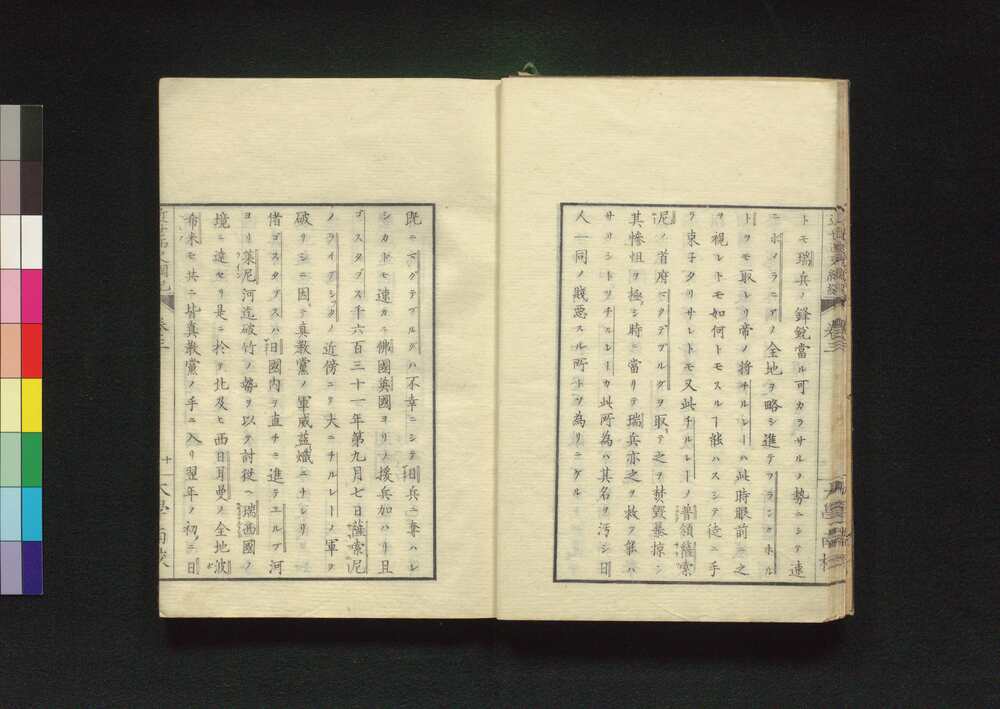 トモ瑞兵ノ鋒銳當ル可カラサルノ勢ニシテ速
ニポメラニアノ全地ヲ略シ進テフランクホル
トヲモ取レリ帝ノ將チルレーハ此時眼前ニ之
ヲ視レトモ如何トモスルー能ハスシテ徒ニ手
ヲ束子タリサレトモ又此チルレーノ普領薩索
泥ノ首府マグデブルグヲ取テ之ヲ焚毀暴掠シ
其慘怛ヲ極シ時ニ當リテ瑞兵亦之ヲ救フ能ハ
サリシトソチルレーカ此所為ハ其名ヲ汚シ曰
人一同ノ賤惡スル所トソ為リニケル
既ニマグデブルグハ不幸ニシテ曰兵ニ奪ハレ
シカトモ速カニ佛國英國ヨリノ援兵加ハリ且
ゴスタブス千六百三十一年第九月七日薩索泥
ノライプシックノ近傍ニテ大ニチルレーノ軍ヲ
破リシニ因テ真敎黨ノ軍威益熾ニナレリ
偖ゴスタブスハ曰國内ヲ直チニ進テエルブ河
ヨリ萊尼河迄破竹ノ勢ヲ以テ討從ヘ瑞西國ノ
境ニ達セリ是ニ於テ北及ヒ西日耳曼ノ全地波
希米モ共ニ皆真敎黨ノ手ニ入リ翌年ノ初ニ曰
卷三
十一